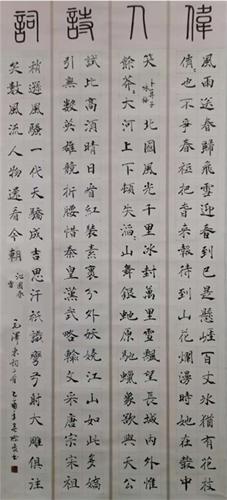 偉人詩詞
風雨送春歸飛雪迎春到已是懸崖百丈冰猶有花枝
俏々也不爭春祇把春來報待到山花爛漫時她在叢中
笑 卜算子 咏梅 北國風光千里冰封萬里雪飄望長城內外惟
餘莽々大河上下頓失滔々山舞銀蛇原馳蠟象欲與天公
試比高須晴日看紅裝素裹分外妖嬈江山如此多嬌
引無數英雄競折腰惜秦皇漢武略輸文采唐宗宋祖
稍遜風騷一代天驕成吉思汗祇識彎弓射大雕俱往
矣數風流人物還看今朝 沁園春 雪 毛澤東詞二首